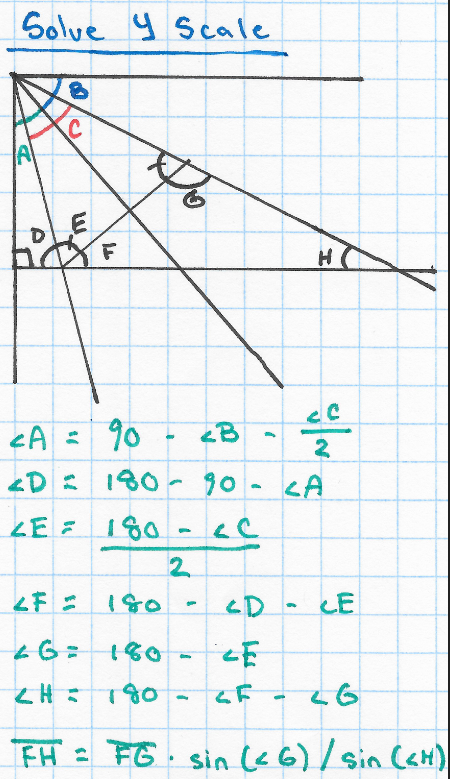 Solve Y Scale
B
C
A
E
D
F
G
H
∠A = 90 - ∠B - ∠C/2
∠D = 180 - 90 - ∠A
∠E = (180 - ∠C)/2
∠F = 180 - ∠D - ∠E
∠G = 180 - ∠E
∠H = 180 - ∠F - ∠G
F̅H̅ = F̅G̅ · sin(∠G) / sin(∠H)